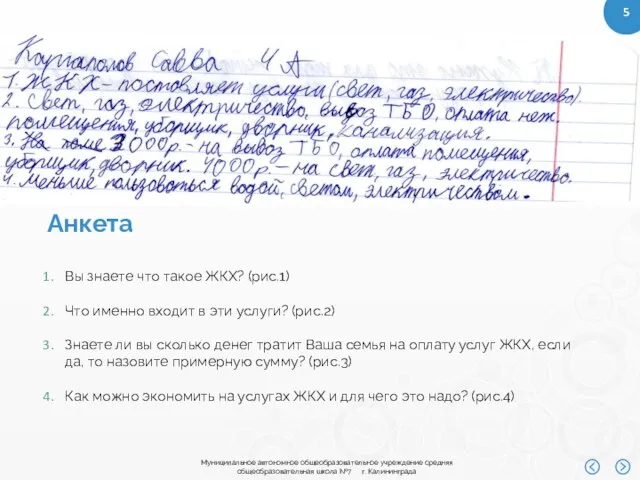 5
Каргаполов Савва 4 А
1. Ж К Х – поставляет услуги (свет, газ, электричество).
2. Свет, газ, электричество, вывоз Т Б О, оплата неж.
помещения, уборщик, дворник, канализация.
3. На доме 2000р. – на вывоз Т Б О, оплата помещения,
уборщик, дворник. 4000р. – на свет, газ, электричество.
4. Меньше пользоваться водой, светом, электричеством.
Анкета
1. Вы знаете что такое ЖКХ? (рис.1)
2. Что именно входит в эти услуги? (рис.2)
3. Знаете ли вы сколько денег тратит Ваша семья на оплату услуг ЖКХ, если
да, то назовите примерную сумму? (рис.3)
4. Как можно экономить на услугах ЖКХ и для чего это надо? (рис.4)
Муниципальное автономное общеобразовательное учреждение средняя
общеобразовательная школа №7 г. Калининграда